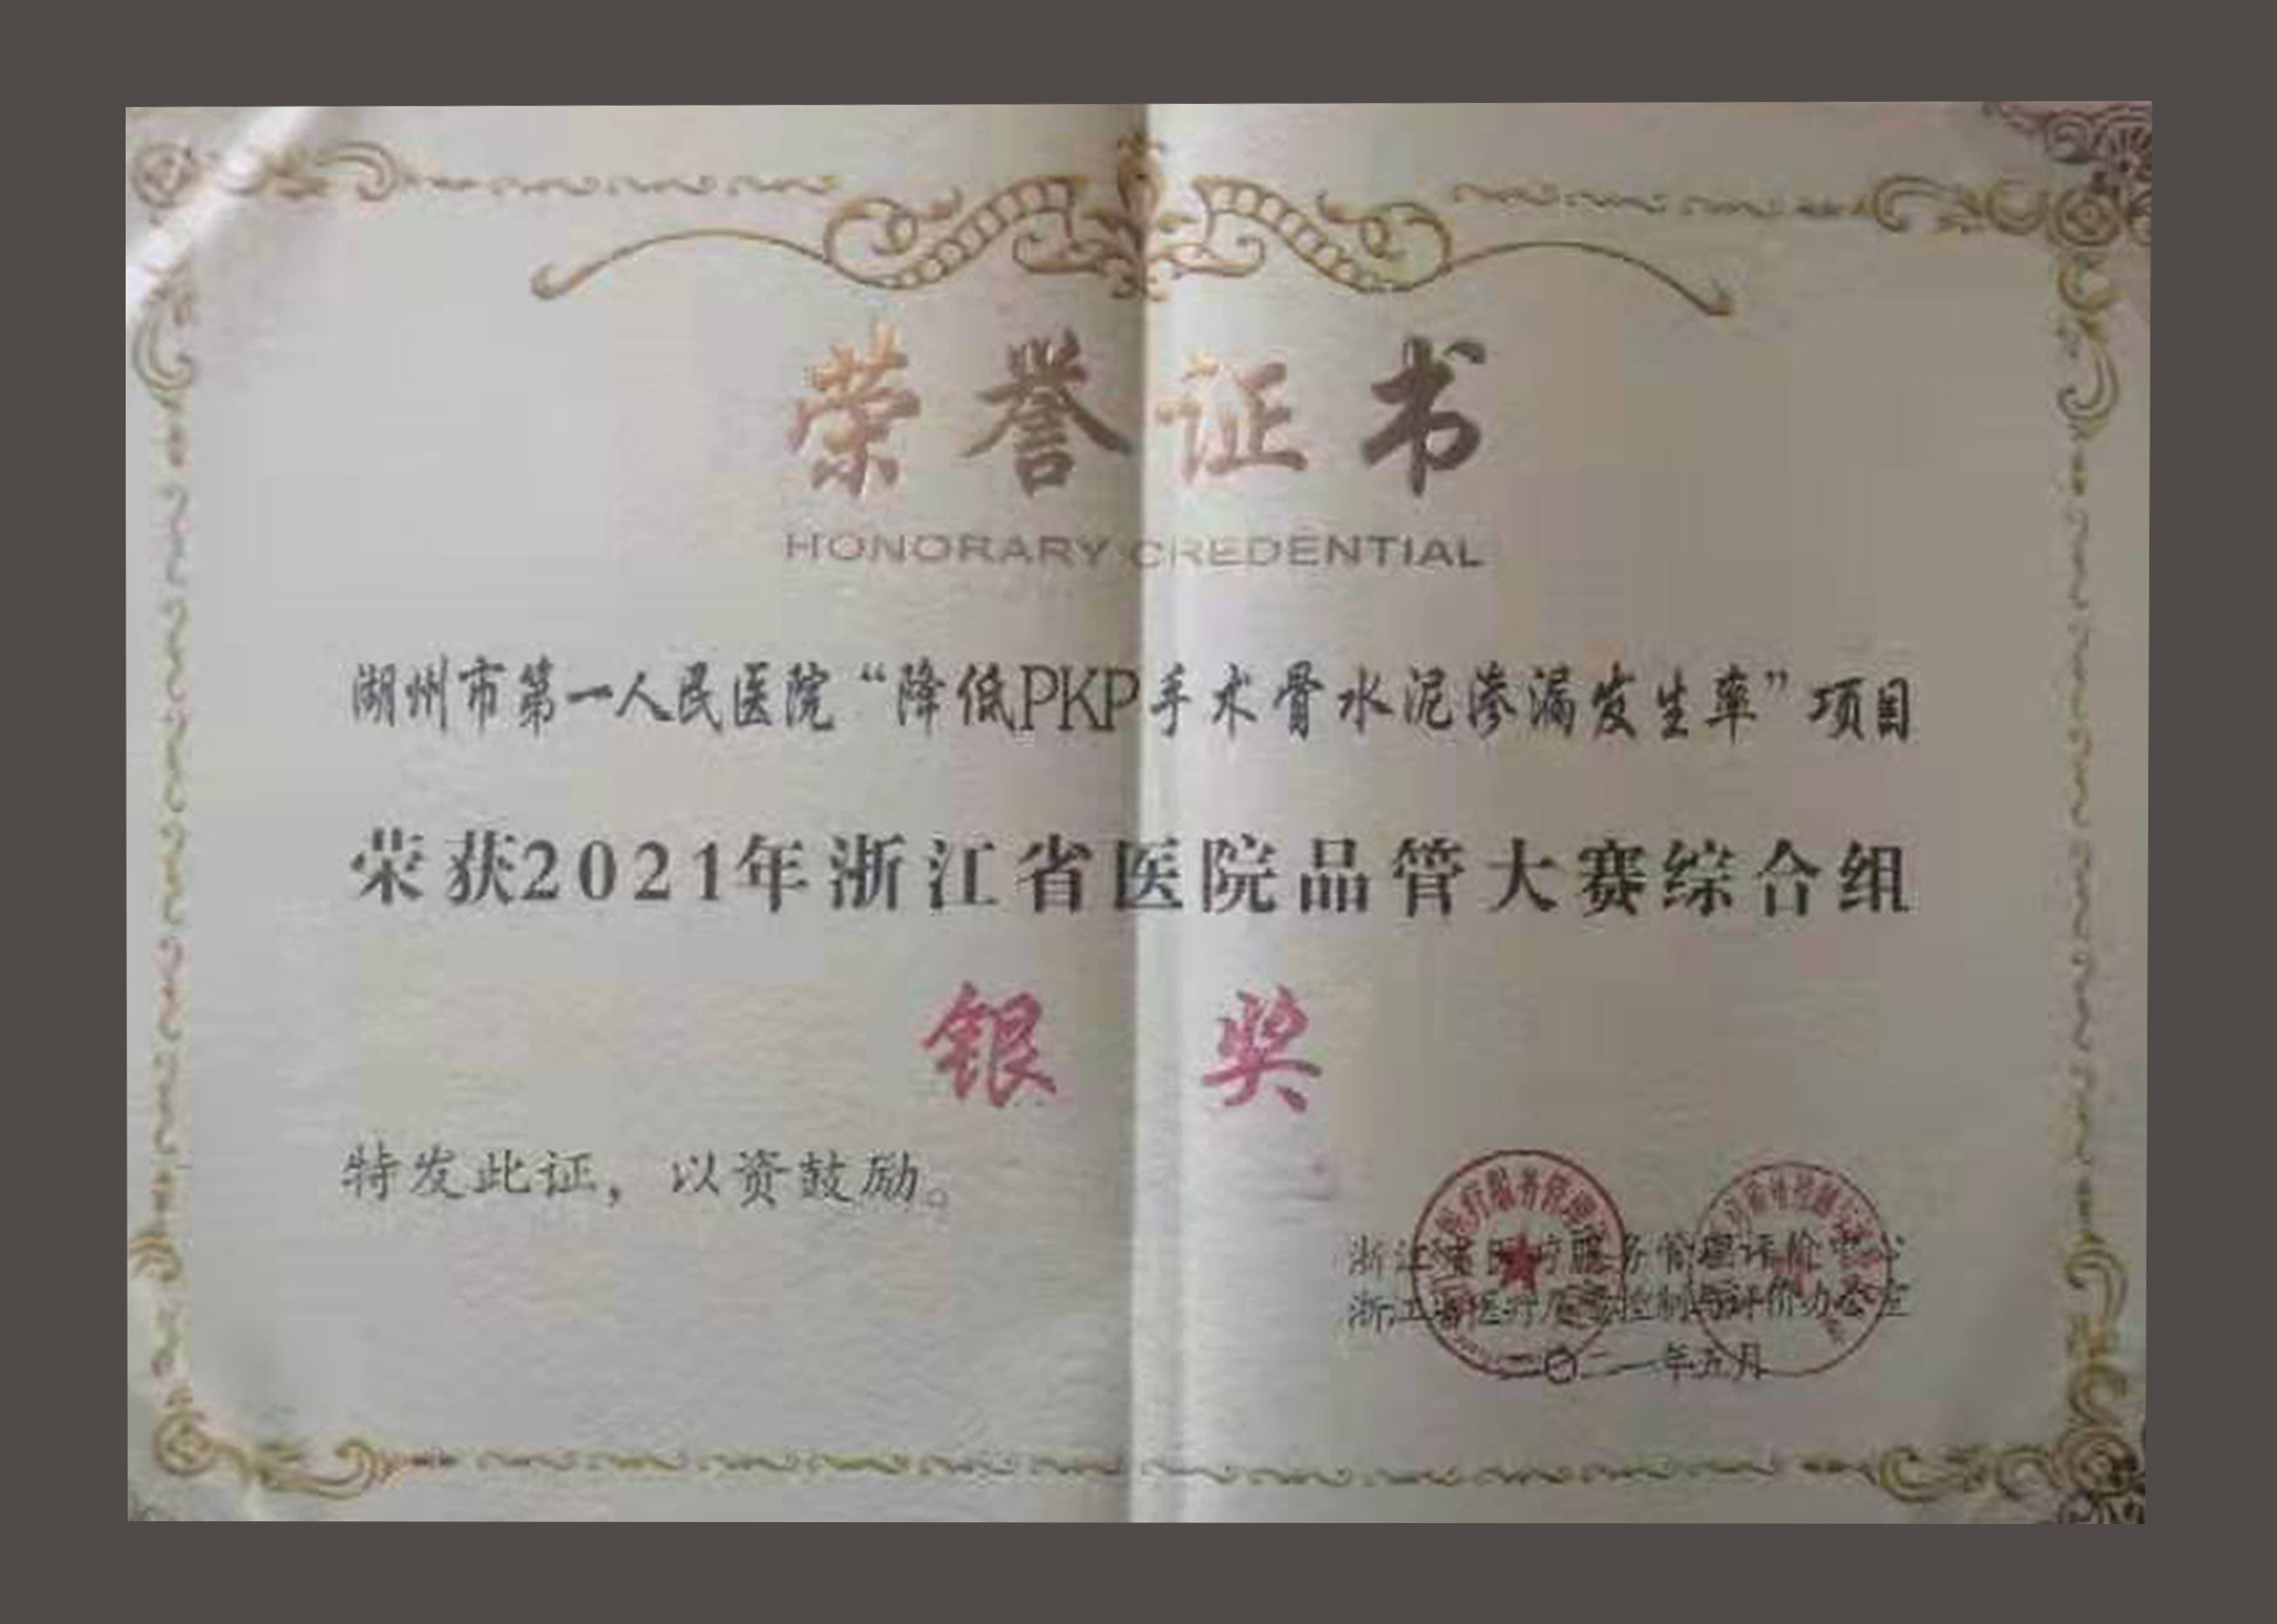 荣誉证书
HONORARY CREDENTIAL
湖州市第一人民医院“降低PKP手术骨水泥渗漏发生率”项目
荣获2021年浙江省医院品管大赛综合组
银奖
特发此证，以资鼓励。
浙江省医疗服务管理评价中心
浙江省医疗质量控制与评价办公室
二〇二一年五月